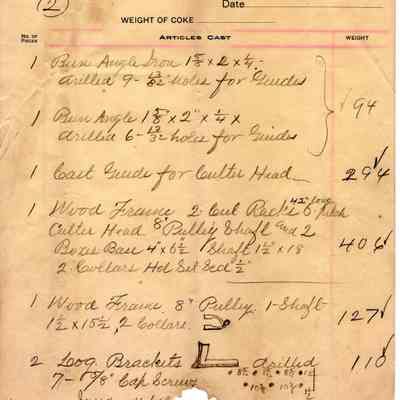 (2)
Date
WEIGHT OF COKE
NO. OF PIECES ARTICLES CAST WEIGHT
1 Run Angle Iron 1 5/8 x 2 x 1/4
drilled 9 - 13/32" holes for Guides
94
1 Run Angle 1 5/8 x 2" x 1/4 x
drilled 6 - 13/32 holes for Guides
1 Cast Guide for Cutter Head 294
1 Wood Frame 2 Cut Racks 42" long 6 pitch
Cutter Head 8" Pulley Shaft and 2
Boxes Base 4" x 6 1/2 Shaft 1 1/2 x 18 406
2 Collars Hd Set Scd 1/2"
1 Wood Frame 8" Pulley 1-Shaft
1 1/2 x 15 1/2 2 Collars. 127
2 Log Brackets drilled 110
7 - 5/8" Cap Screws